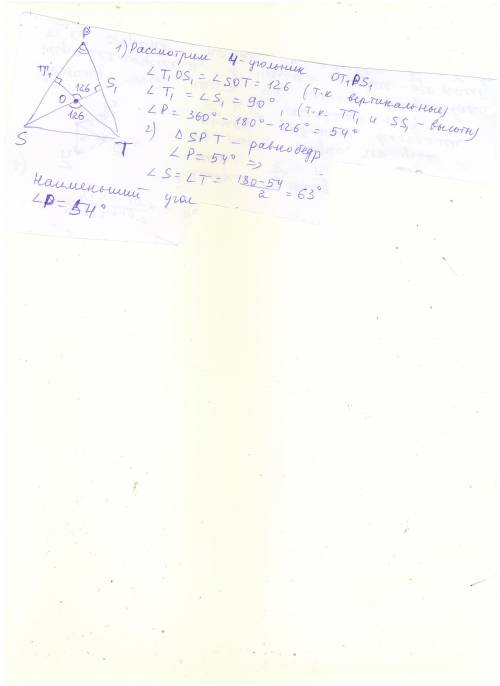 P
1) Рассмотрим 4-угольник OT₁PS₁
∠T₁OS₁ = ∠SOT = 126 (т.к вертикальные)
∠T₁ = ∠S₁ = 90°, (т.к. TT₁ и SS₁ - высоты)
∠P = 360° - 180° - 126° = 54°
2) △SPT - равнобедр
∠P = 54° =>
∠S = ∠T = (180-54)/2 = 63°
S₁
126
O
126
S
T
Наименьший угол
∠P = 54°